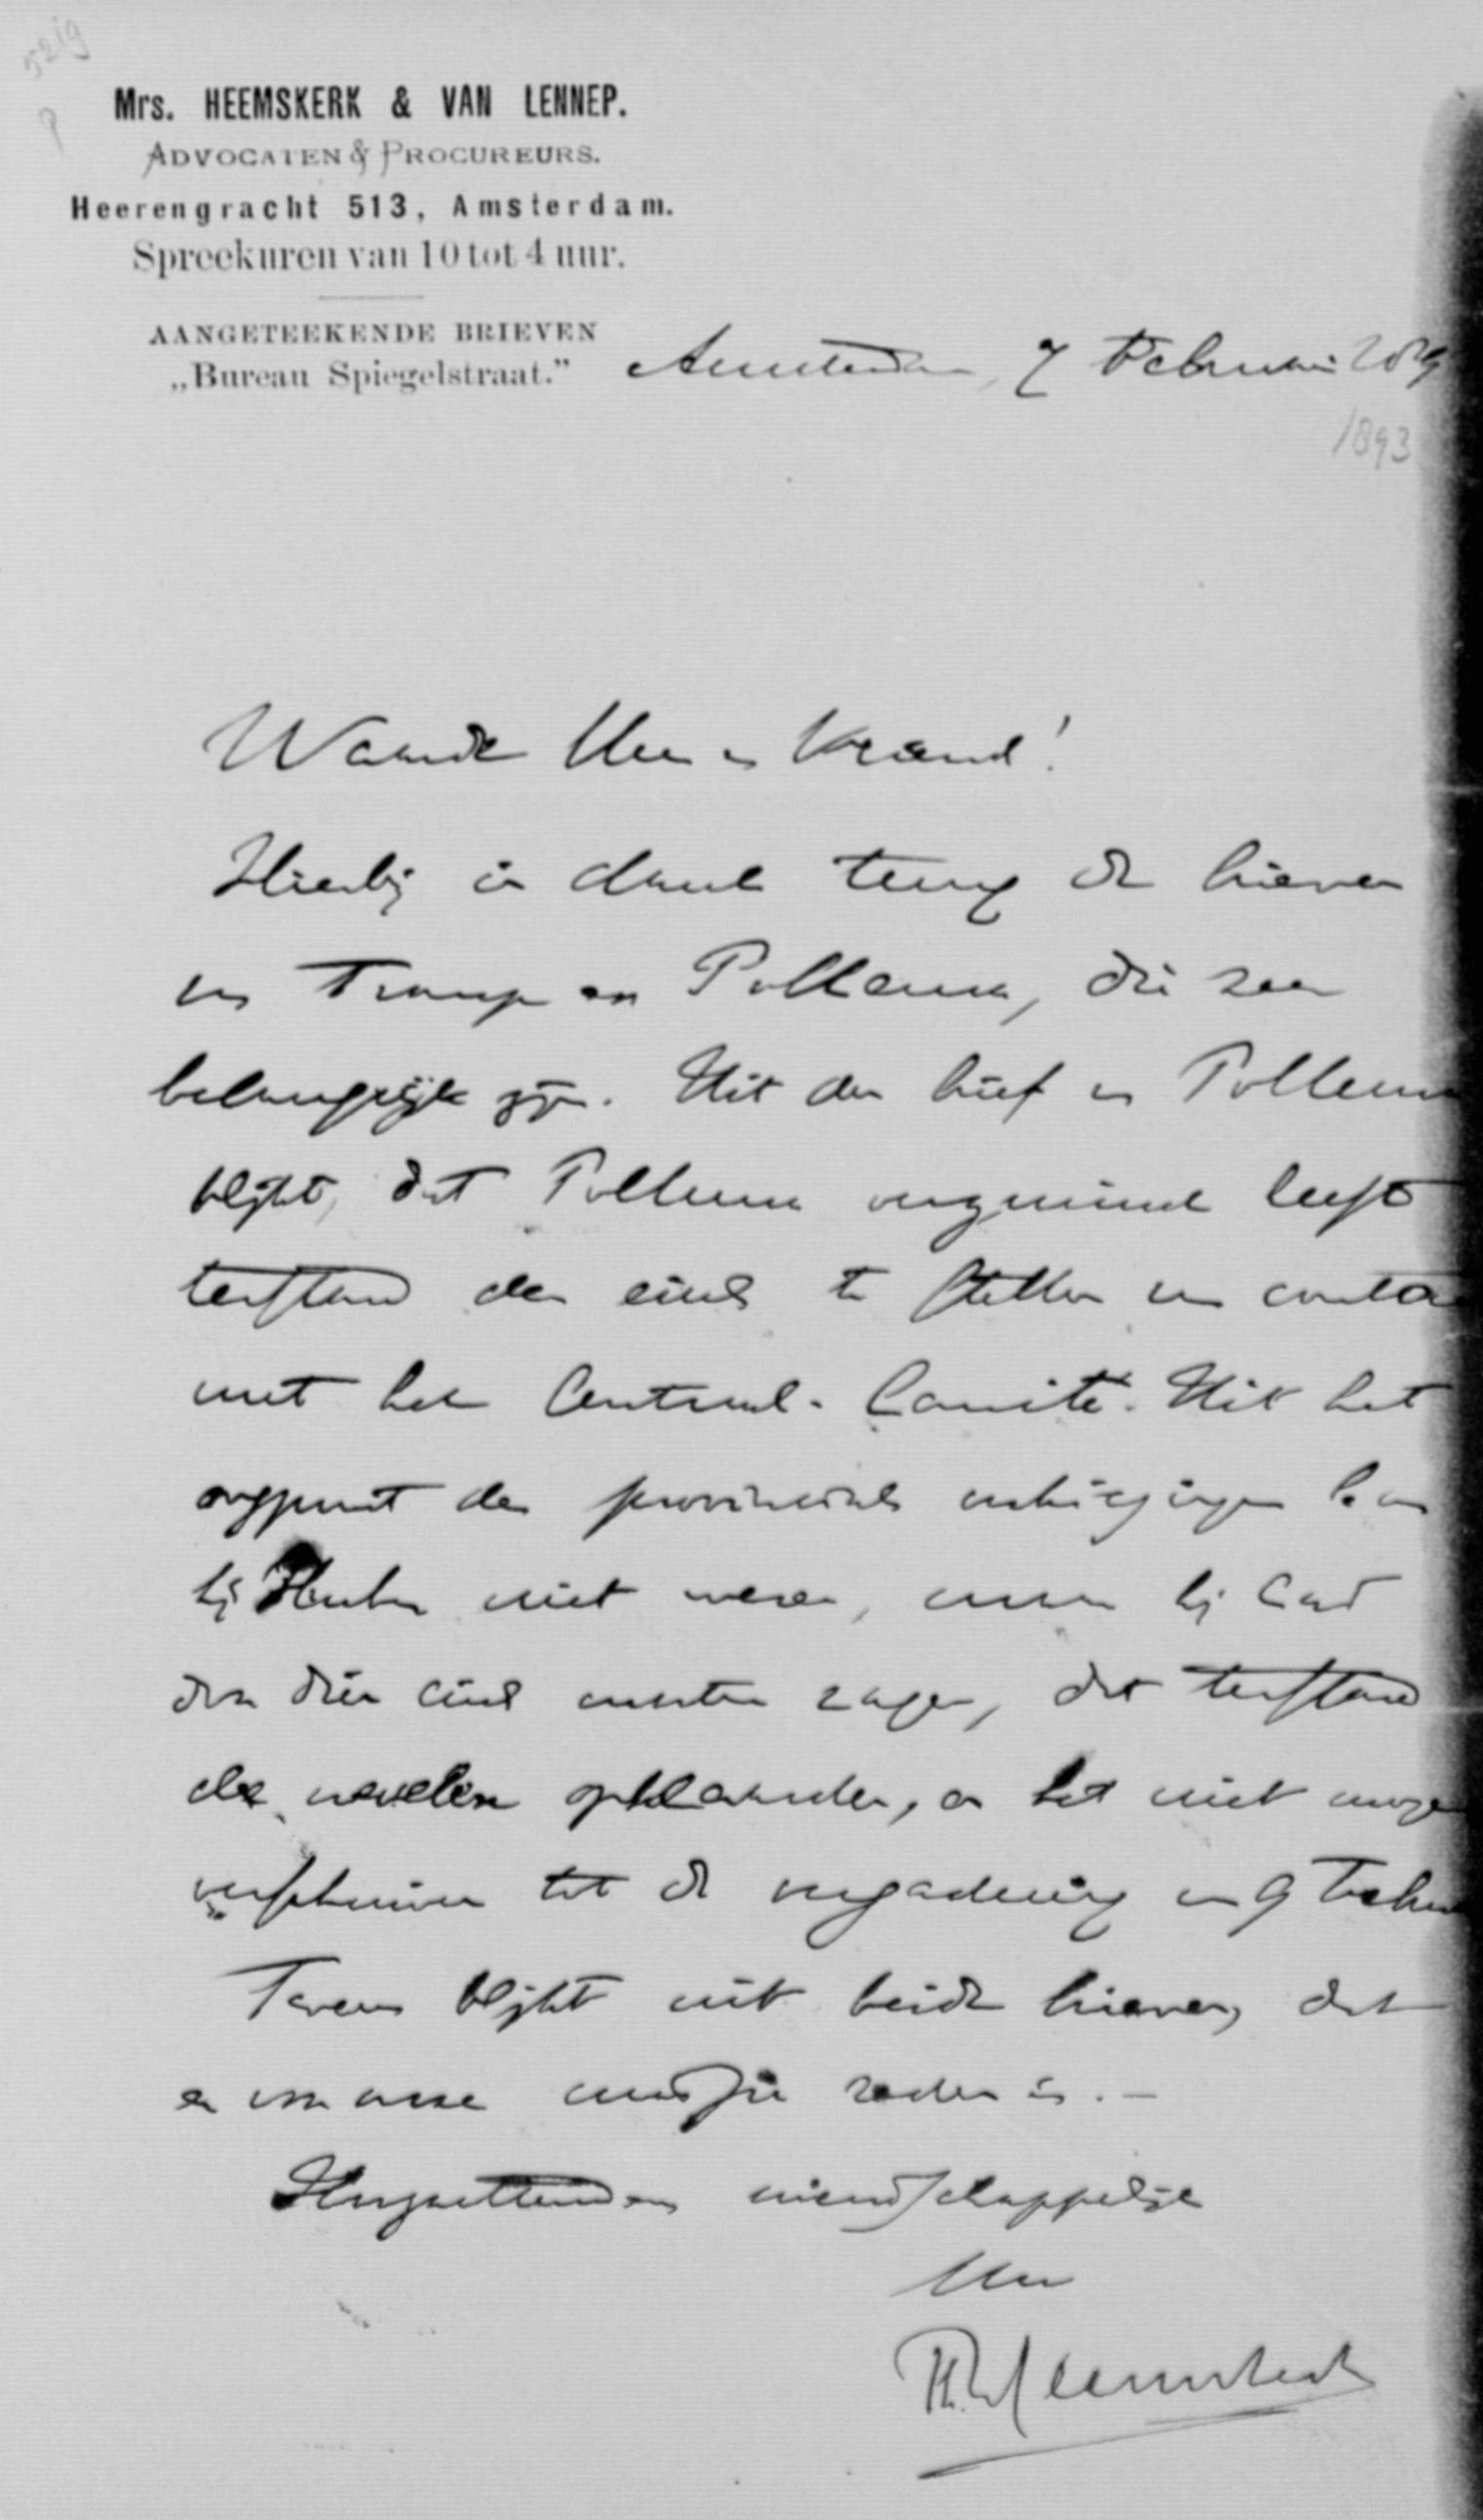 5219
Mrs. HEEMSKERK & VAN LENNEP.
ADVOCATEN & PROCUREURS.
Heerengracht 513, Amsterdam.
Spreekuren van 10 tot 4 uur.
AANGETEEKENDE BRIEVEN
„Bureau Spiegelstraat.”
Amsterdam, 7 Februari
1893
Waarde Heer en Vriend!
Hierbij in dank terug de brieven
van Tromp en Pollema, die zeer
belangrijk zijn. Uit den brief van Pollema
blijkt, dat Pollema verzuimd heeft
terstond den eisch te stellen van contact
met het Centraal-Comité. Uit het
oogpunt der provinciale
hij Huber niet weren, maar hij had
dien eisch moeten zeggen, dat terstond
de nevelen opklaarden, en het niet mogen
verschuiven tot de vergadering van 9 Febr
Tevens blijkt uit beide brieven, dat
er reden is. —
Hoogachtend en vriendschappelijk
Uw
Th. Heemskerk